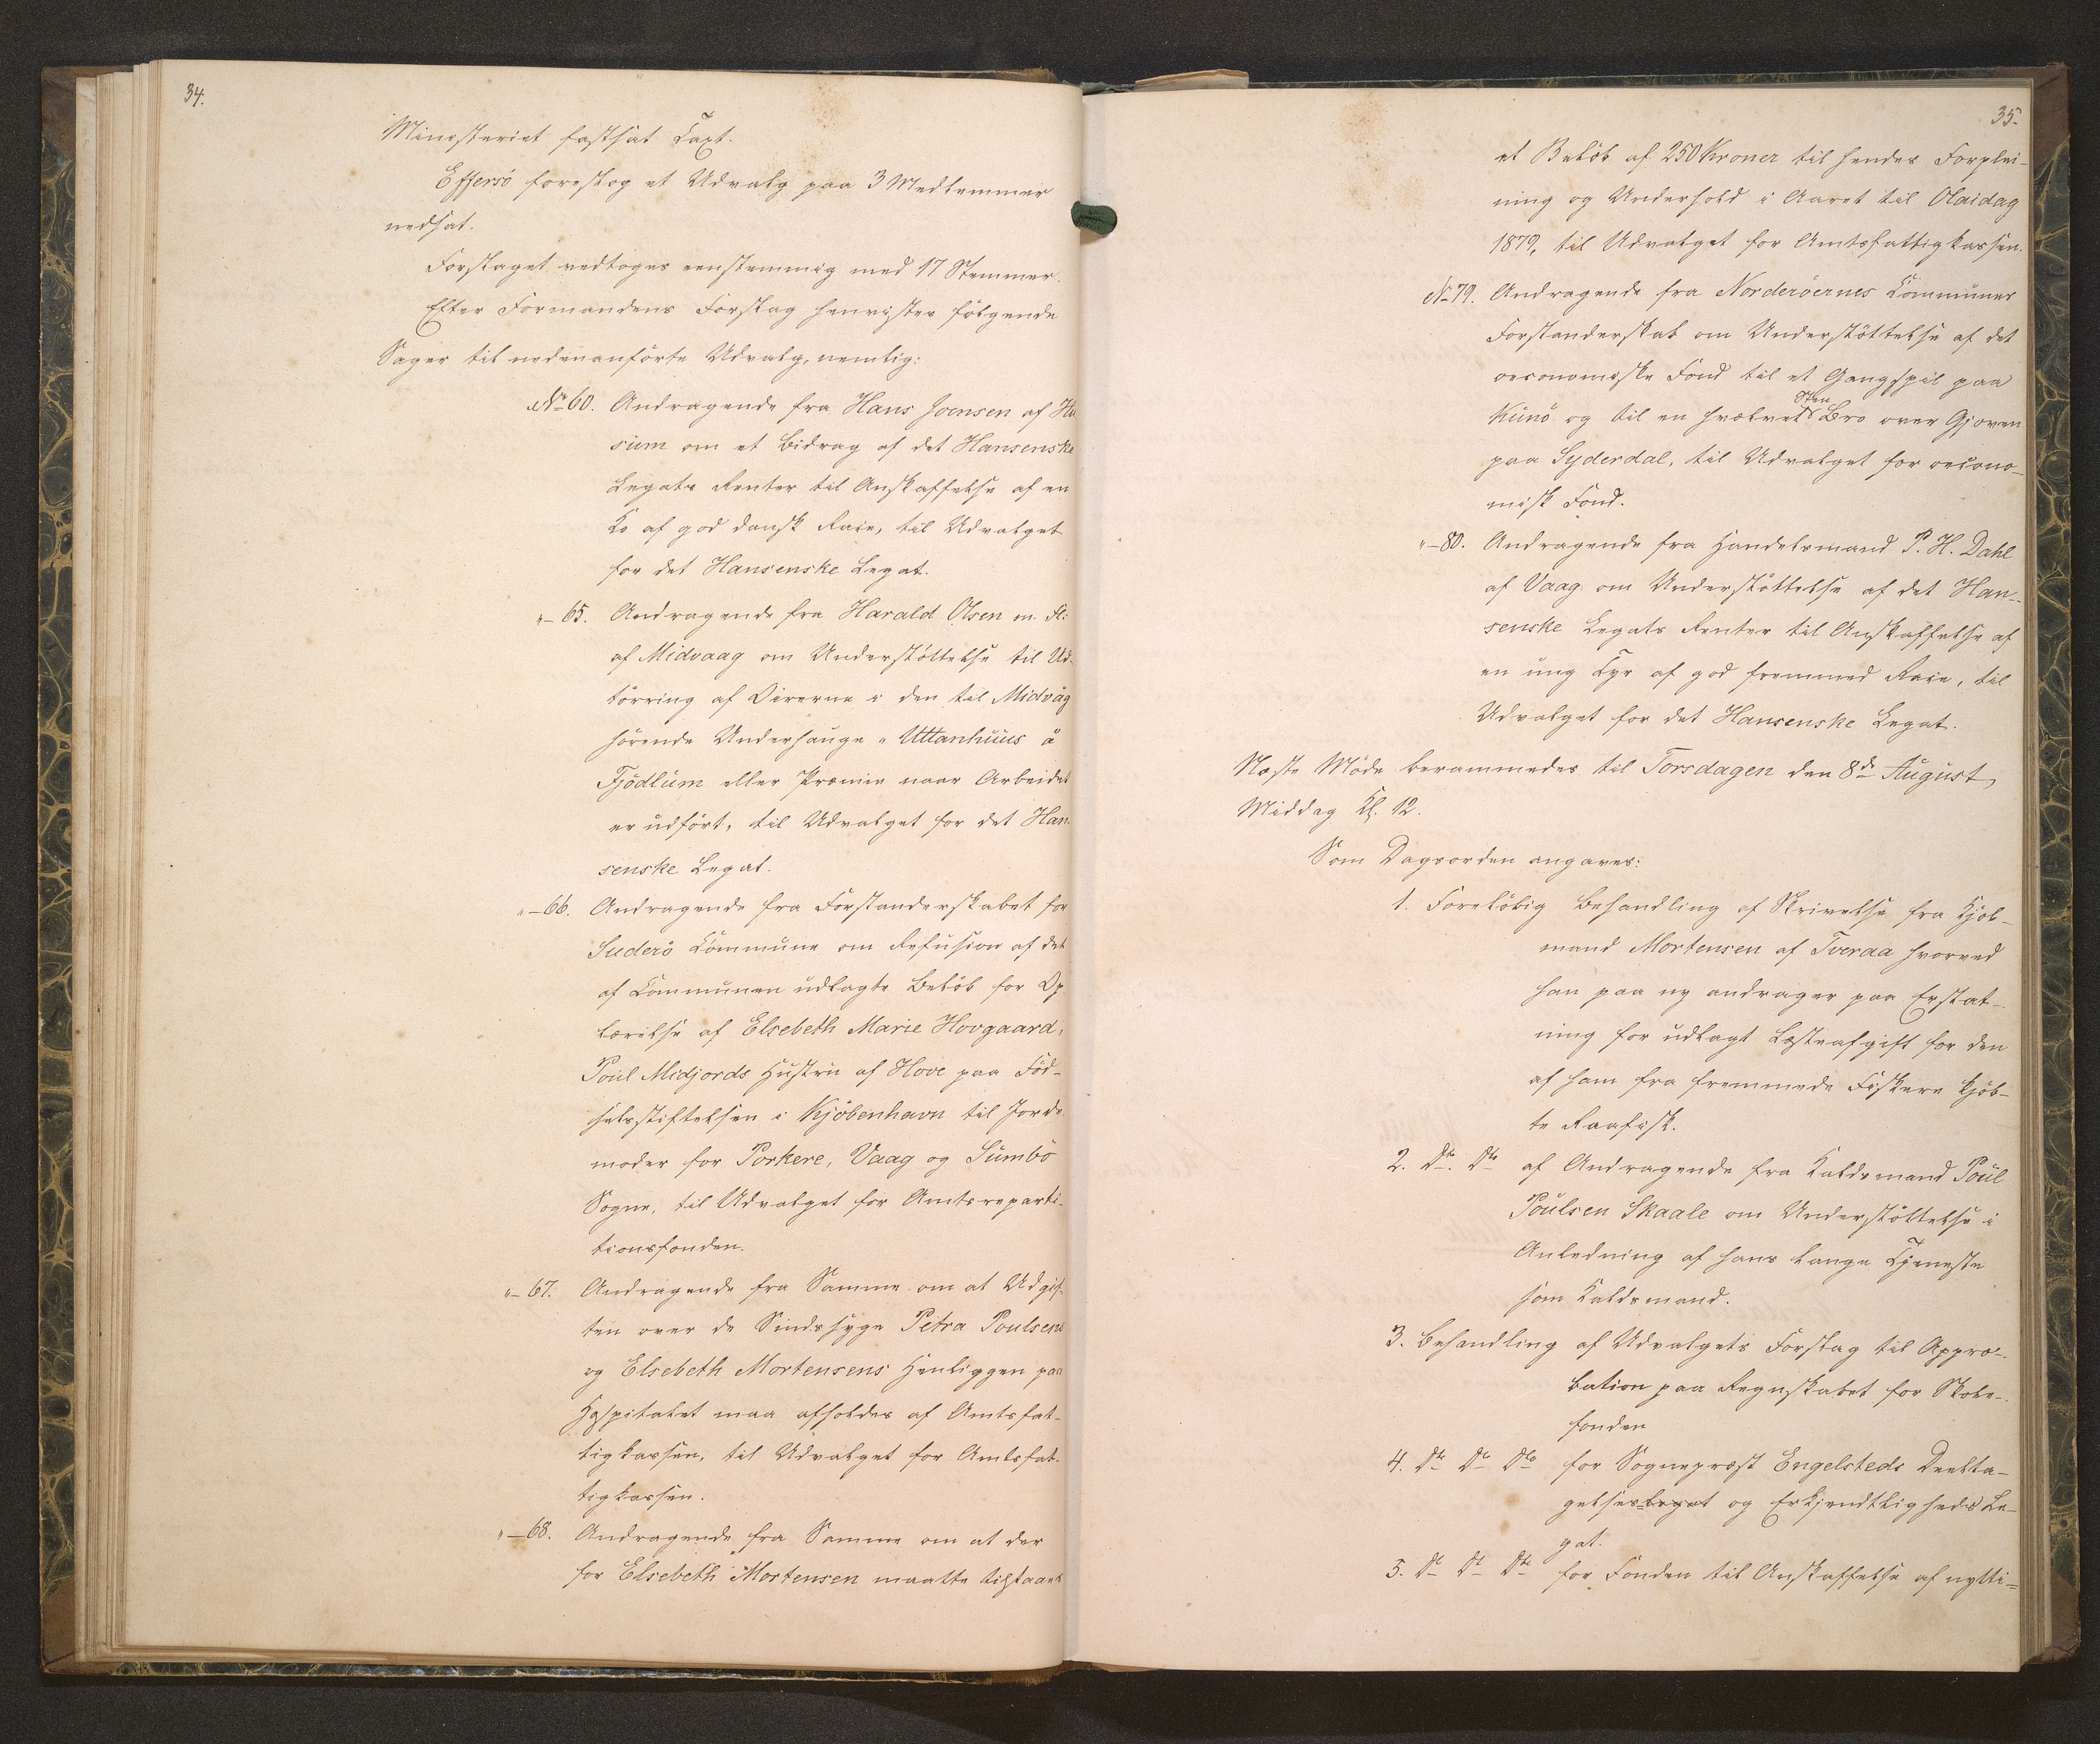 34.
Ministeriet fastsat Taxt.
Effersö foreslog et Udvalg paa 3 Medlemmer
nedsat.
Forslaget vedtoges eenstemmig med 17 Stemmer.
Efter Formandens Forslag henvistes følgende
Sager til nedenanförte Udvalg, nemlig:
No 60. Andragende fra Hans Joensen af Hu
sum om et Bidrag af det Hansenske
Legats Renter til Anskaffelse af en
Ko af god dansk Race, til Udvalget
for det Hansenske Legat.
"– 65. Andragende fra Harald Olsen m. Fl:
af Midvaag om Understöttelse til Ud-
törring af Direrne i den til Midvåg
hörende Underhauge "Uttanhuus å
Fjödlum eller Præmie naar Arbeidet
er udfört, til Udvalget for det Han-
senske Legat.
"– 66. Andragende fra Forstanderskabet for
Suderö Commune om Refusion af det
af Communen udlagte Belöb for Op
lærelse af Elsebeth Marie Hovgaard,
Poul Midjords Hustru af Hove paa Föd-
selsstiftelsen i Kjöbenhavn til Jorde
moder for Porkere, Vaag og Sumbö
Sogne, til Udvalget for Amtsreparti-
tionsfonden.
"– 67. Andragende fra Samme om at Udgif-
ten over de Sindssyge Petra Poulsens
og Elsebeth Mortensens Henliggen paa
Hospitalet maa afholdes af Amtsfat-
tigkassen, til Udvalget for Amtsfat-
tigkassen.
"– 68. Andragende fra Samme om at der
for Elsebeth Mortensen maatte tilstaaes
35.
et Belöb af 250 Kroner til hendes Forplei-
ning og Underhold i Aaret til Olaidag
1879, til Udvalget for Amtsfattigkassen.
No 79. Andragende fra Norderöernes Communes
Forstanderskab om Understöttelse af det
oeconomiske Fond til et Gangspil paa
Kunö og til en hvælvet Sten Bro over Gjoven
paa Syderdal, til Udvalget for oecono-
misk Fond.
"– 80. Andragende fra Handelsmand P. H. Dahl
af Vaag om Understöttelse af det Han-
senske Legats Renter til Anskaffelse af
en ung Tyr af god fremmed Race, til
Udvalget for det Hansenske Legat.
Næste Möde berammedes til Torsdagen den 8de August,
Middag Kl. 12.
Som Dagsorden angaves:
1. Forelöbig Behandling af Skrivelse fra Kjöb-
mand Mortensen af Tveraa hvorved
han paa ny andrager paa Erstat-
ning for udlagt Lasteafgift for den
af ham fra fremmede Fiskere kjöb-
te Raafisk.
2. Do. Do af Andragende fra Kaldsmand Poul
Poulsen Skaale om Understöttelse i
Anledning af hans lange Tjeneste
som Kaldsmand.
3. Behandling af Udvalgets Forslag til Appro-
bation paa Regnskabet for Skole-
fonden
4. Do Do Do for Sognepræst Engelsteds Deelta-
gelses=legat og Erkjendtligheds Le-
gat.
5. Do Do Do for Fonden til Anskaffelse af nytti=